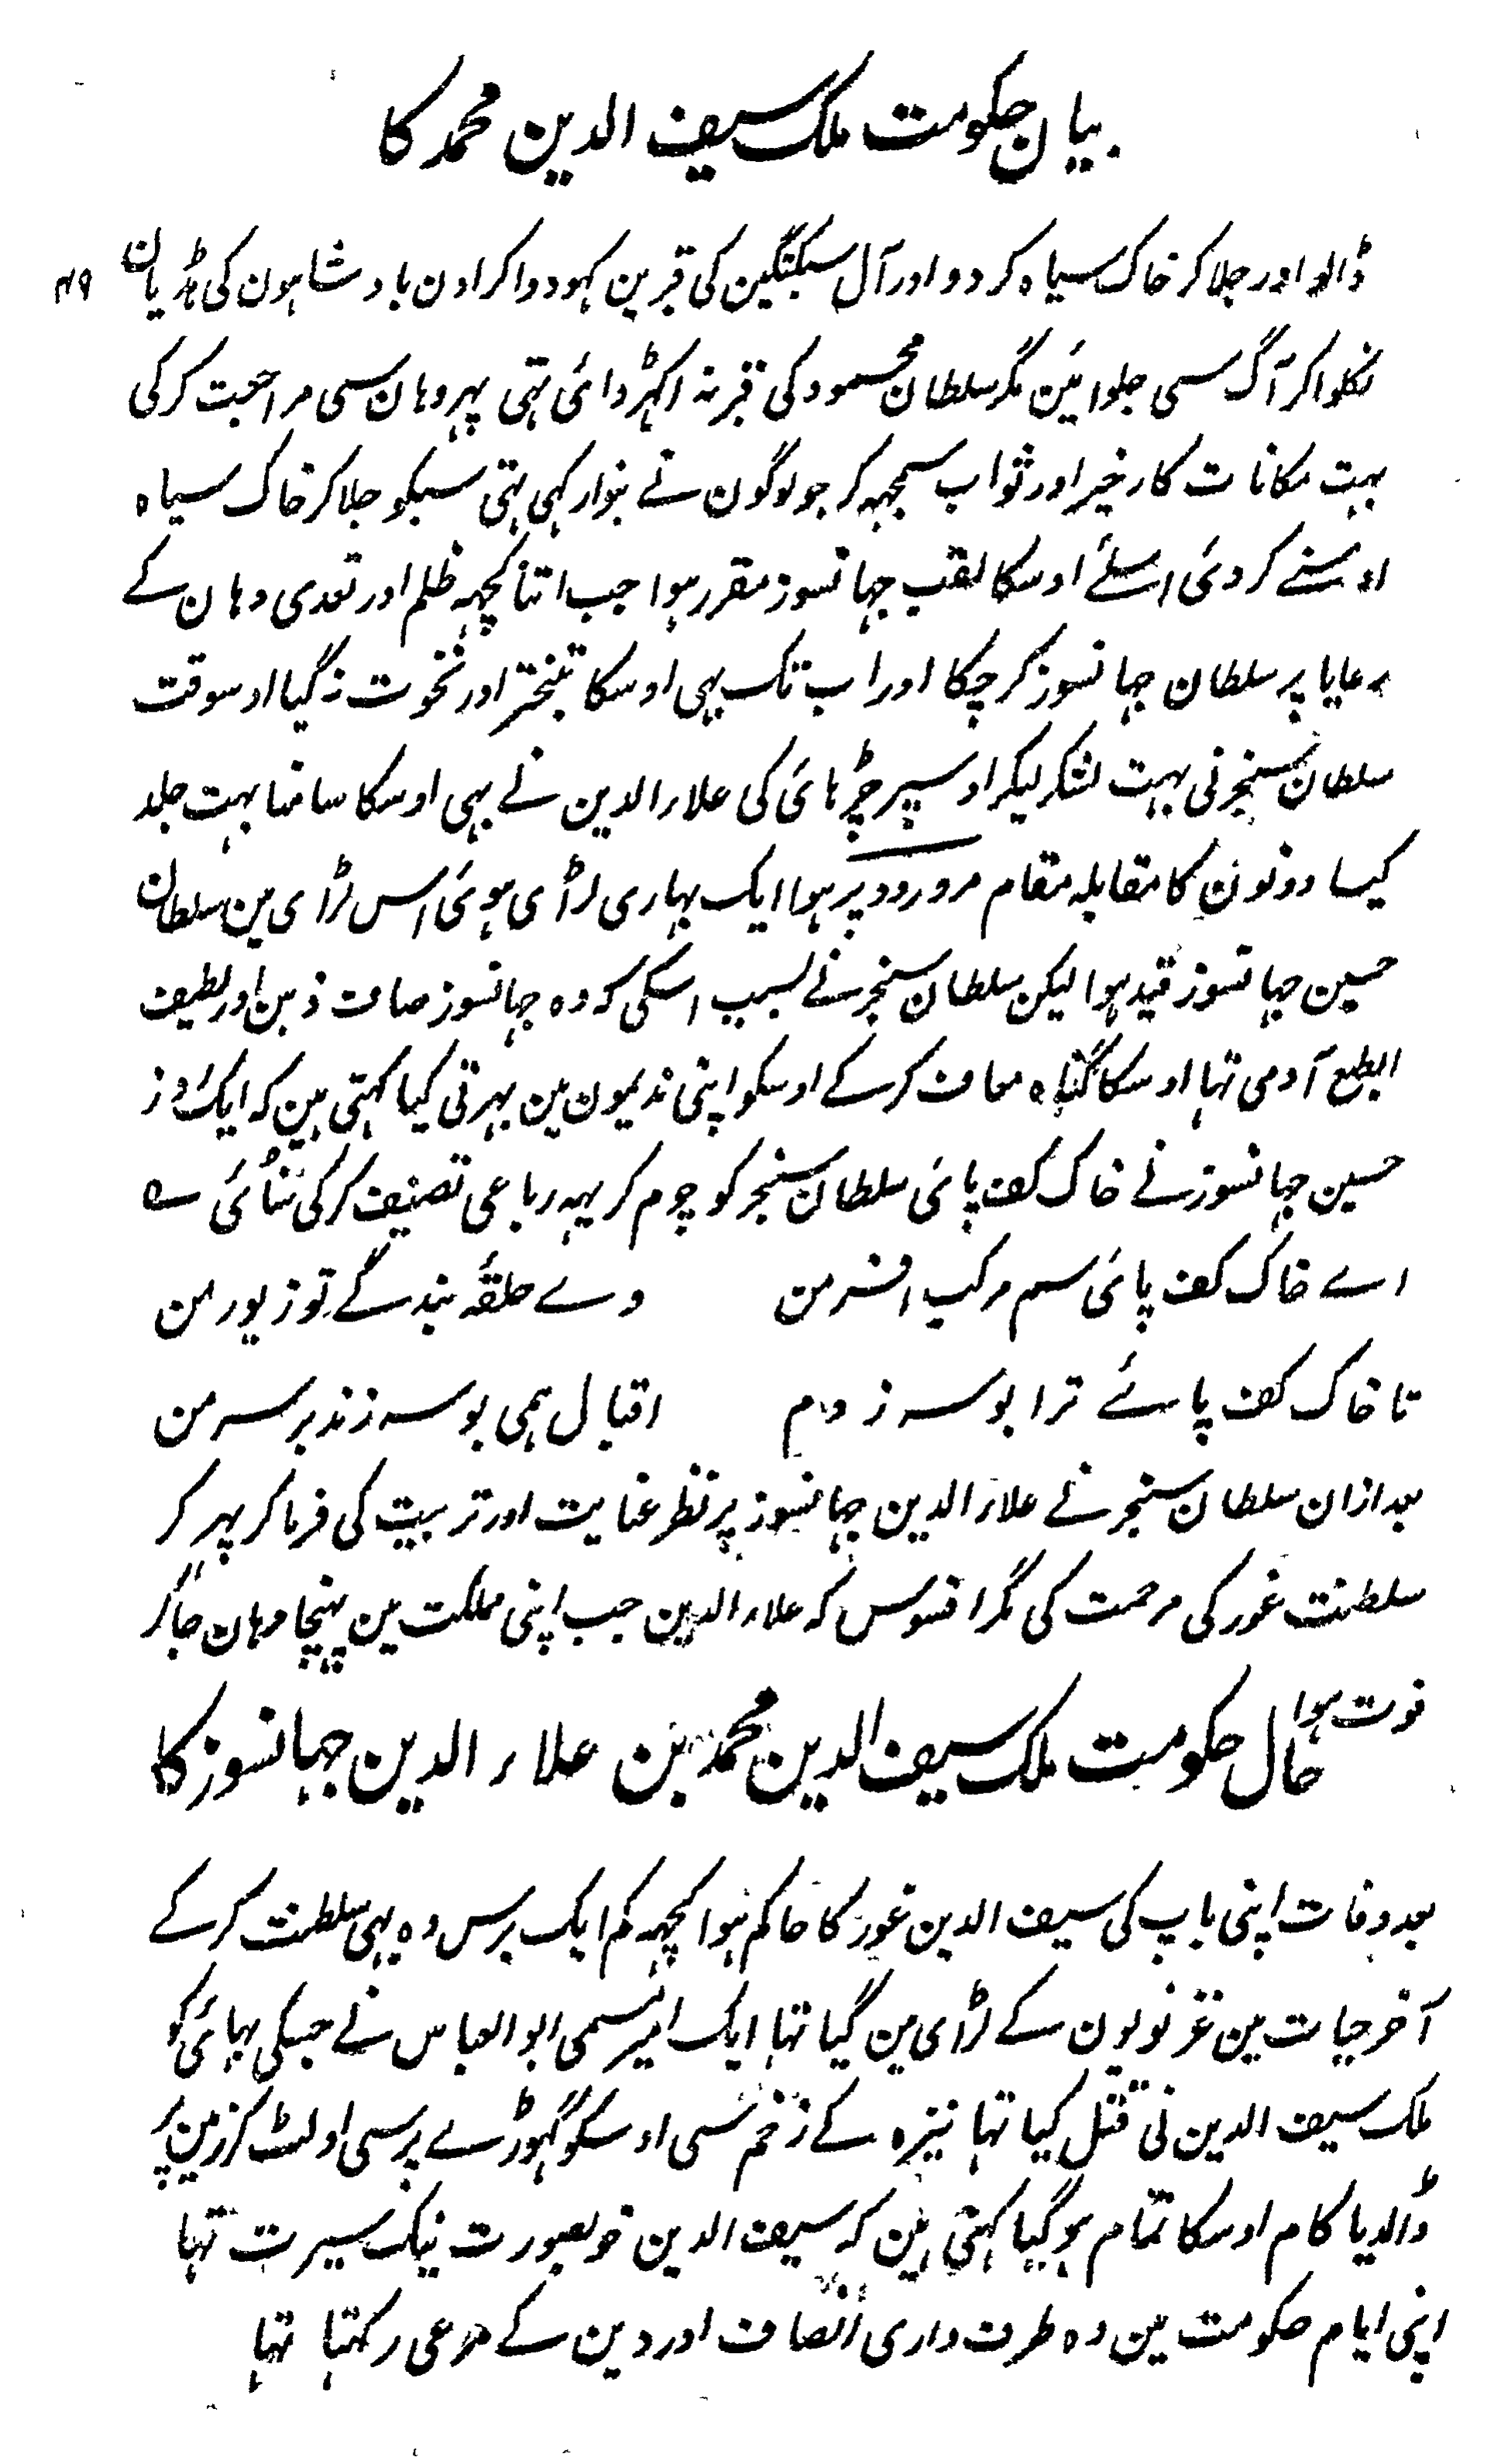 بیان حکومت ملک سیف الدین محمد کا
ڈالو اور جلا کر خاک سیاہ کر دو اور آل سبکتگین کی قبرین کہودوا کر اون بادشاہون کی ہڈیان ۴۹
نکلوا کر آگ سی جلوائین مگر سلطان محمود کی قبر نہ اکہڑوائی تہی پہر وہان سی مراجعت کر کی
بہت مکانات کار خیر اور ثواب سمجہہ کر جو لوگون نے بنوار کہی تہی سبکو جلا کر خاک سیاہ
اوسنے کر دئی اسلئے اوسکا لقب جہانسوز مقرر ہوا جب اتنا کچہہ ظلم اور تعدی وہان کے
رعایا پر سلطان جہانسوز کر چکا اور اب تک بہی اوسکا تبختر اور نخوت نہ گیا اوسوقت
سلطان سنجر نی بہت لشکر لیکر اوسپر چڑہائی کی علاء الدین نے بہی اوسکا سامنا بہت جلد
کیا دونون کا مقابلہ مقام مرورود پر ہوا ایک بہاری لڑائی ہوئی اس لڑائی مین سلطان
حسین جہانسوز قید ہوا لیکن سلطان سنجر نے بسبب اسکی کہ وہ جہانسوز صاف ذہن اور لطیف
الطبع آدمی تہا اوسکا گناہ معاف کر کے اوسکو اپنی ندیمون مین بہرتی کیا کہتی ہین کہ ایک روز
حسین جہانسوز نے خاک کف پائی سلطان سنجر کو چوم کر یہہ رباعی تصنیف کر کی سُنائی ؎
اے خاک کف پائی سم مرکب افسر من وے حلقۂ بندگے تو زیور من
تا خاک کف پائے ترا بوسہ زدم اقبال ہمی بوسہ زند بر سر من
بعد ازان سلطان سنجر نے علاء الدین جہانسوز پر نظر عنایت اور تربیت کی فرما کر پہر کر
سلطنت غور کی مرحمت کی مگر افسوس کہ علاء الدین جب اپنی مملکت مین پہنچا وہان جا کر
فوت ہوا
حال حکومت ملک سیف الدین محمد بن علاء الدین جہانسوز کا
بعد وفات اپنی باپ کی سیف الدین غور کا حاکم ہوا کچہہ کم ایک برس وہ بہی سلطنت کر کے
آخر حیات مین غزنویون کے لڑائی مین گیا تہا ایک امیر مسمی ابو العباس نے جسکی بہائی کو
ملک سیف الدین نی قتل کیا تہا نیزہ کے زخم سی اوسکو گہوڑے پر سی اولٹ کر زمین پر
ڈالدیا کام اوسکا تمام ہو گیا کہتی ہین کہ سیف الدین خوبصورت نیک سیرت تہا
اپنی ایام حکومت مین وہ طرف داری انصاف اور دین کے مرعی رکہتا تہا